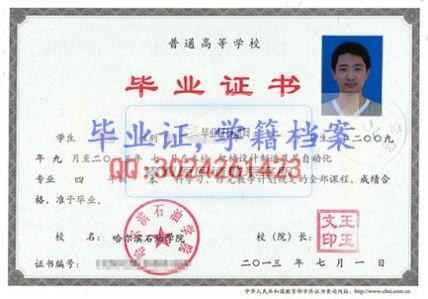 普通高等学校
毕业证书
学生 性别 生 二〇〇九
毕业证,学籍档案
年九月至二〇一三年七
QQ:3024261423
机械设计制造及其自动化
专业 四年制 本科学习,修完教学计划规定的全部课程,成绩合
格,准予毕业。
校 名: 哈尔滨石油学院 校(院)长: 王玉文印
哈尔滨石油学院
证书编号: 二〇一三年七月一日
中华人民共和国教育部学历证书查询网址:http://www.chsi.com.cn